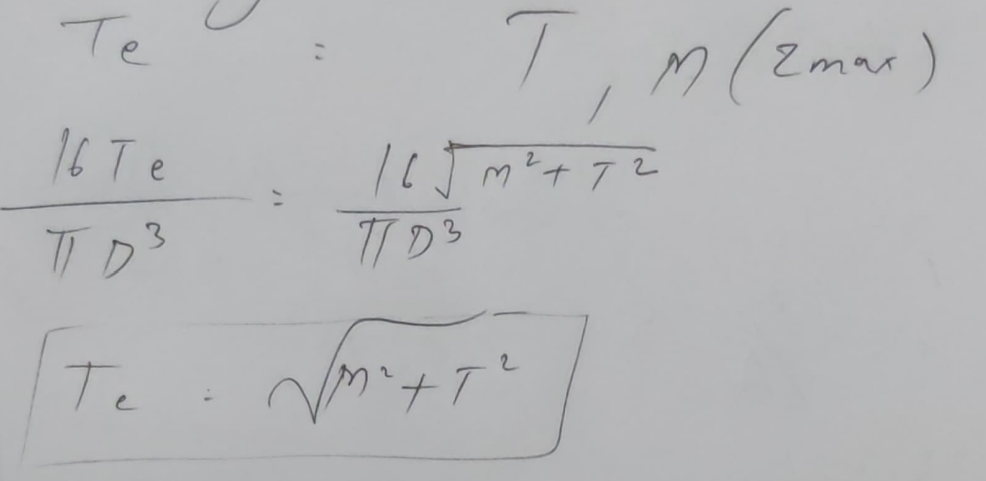 Te : T, M (τmax)
16 Te / π D³ = 16 √(M² + T²) / π D³
Te = √(M² + T²)